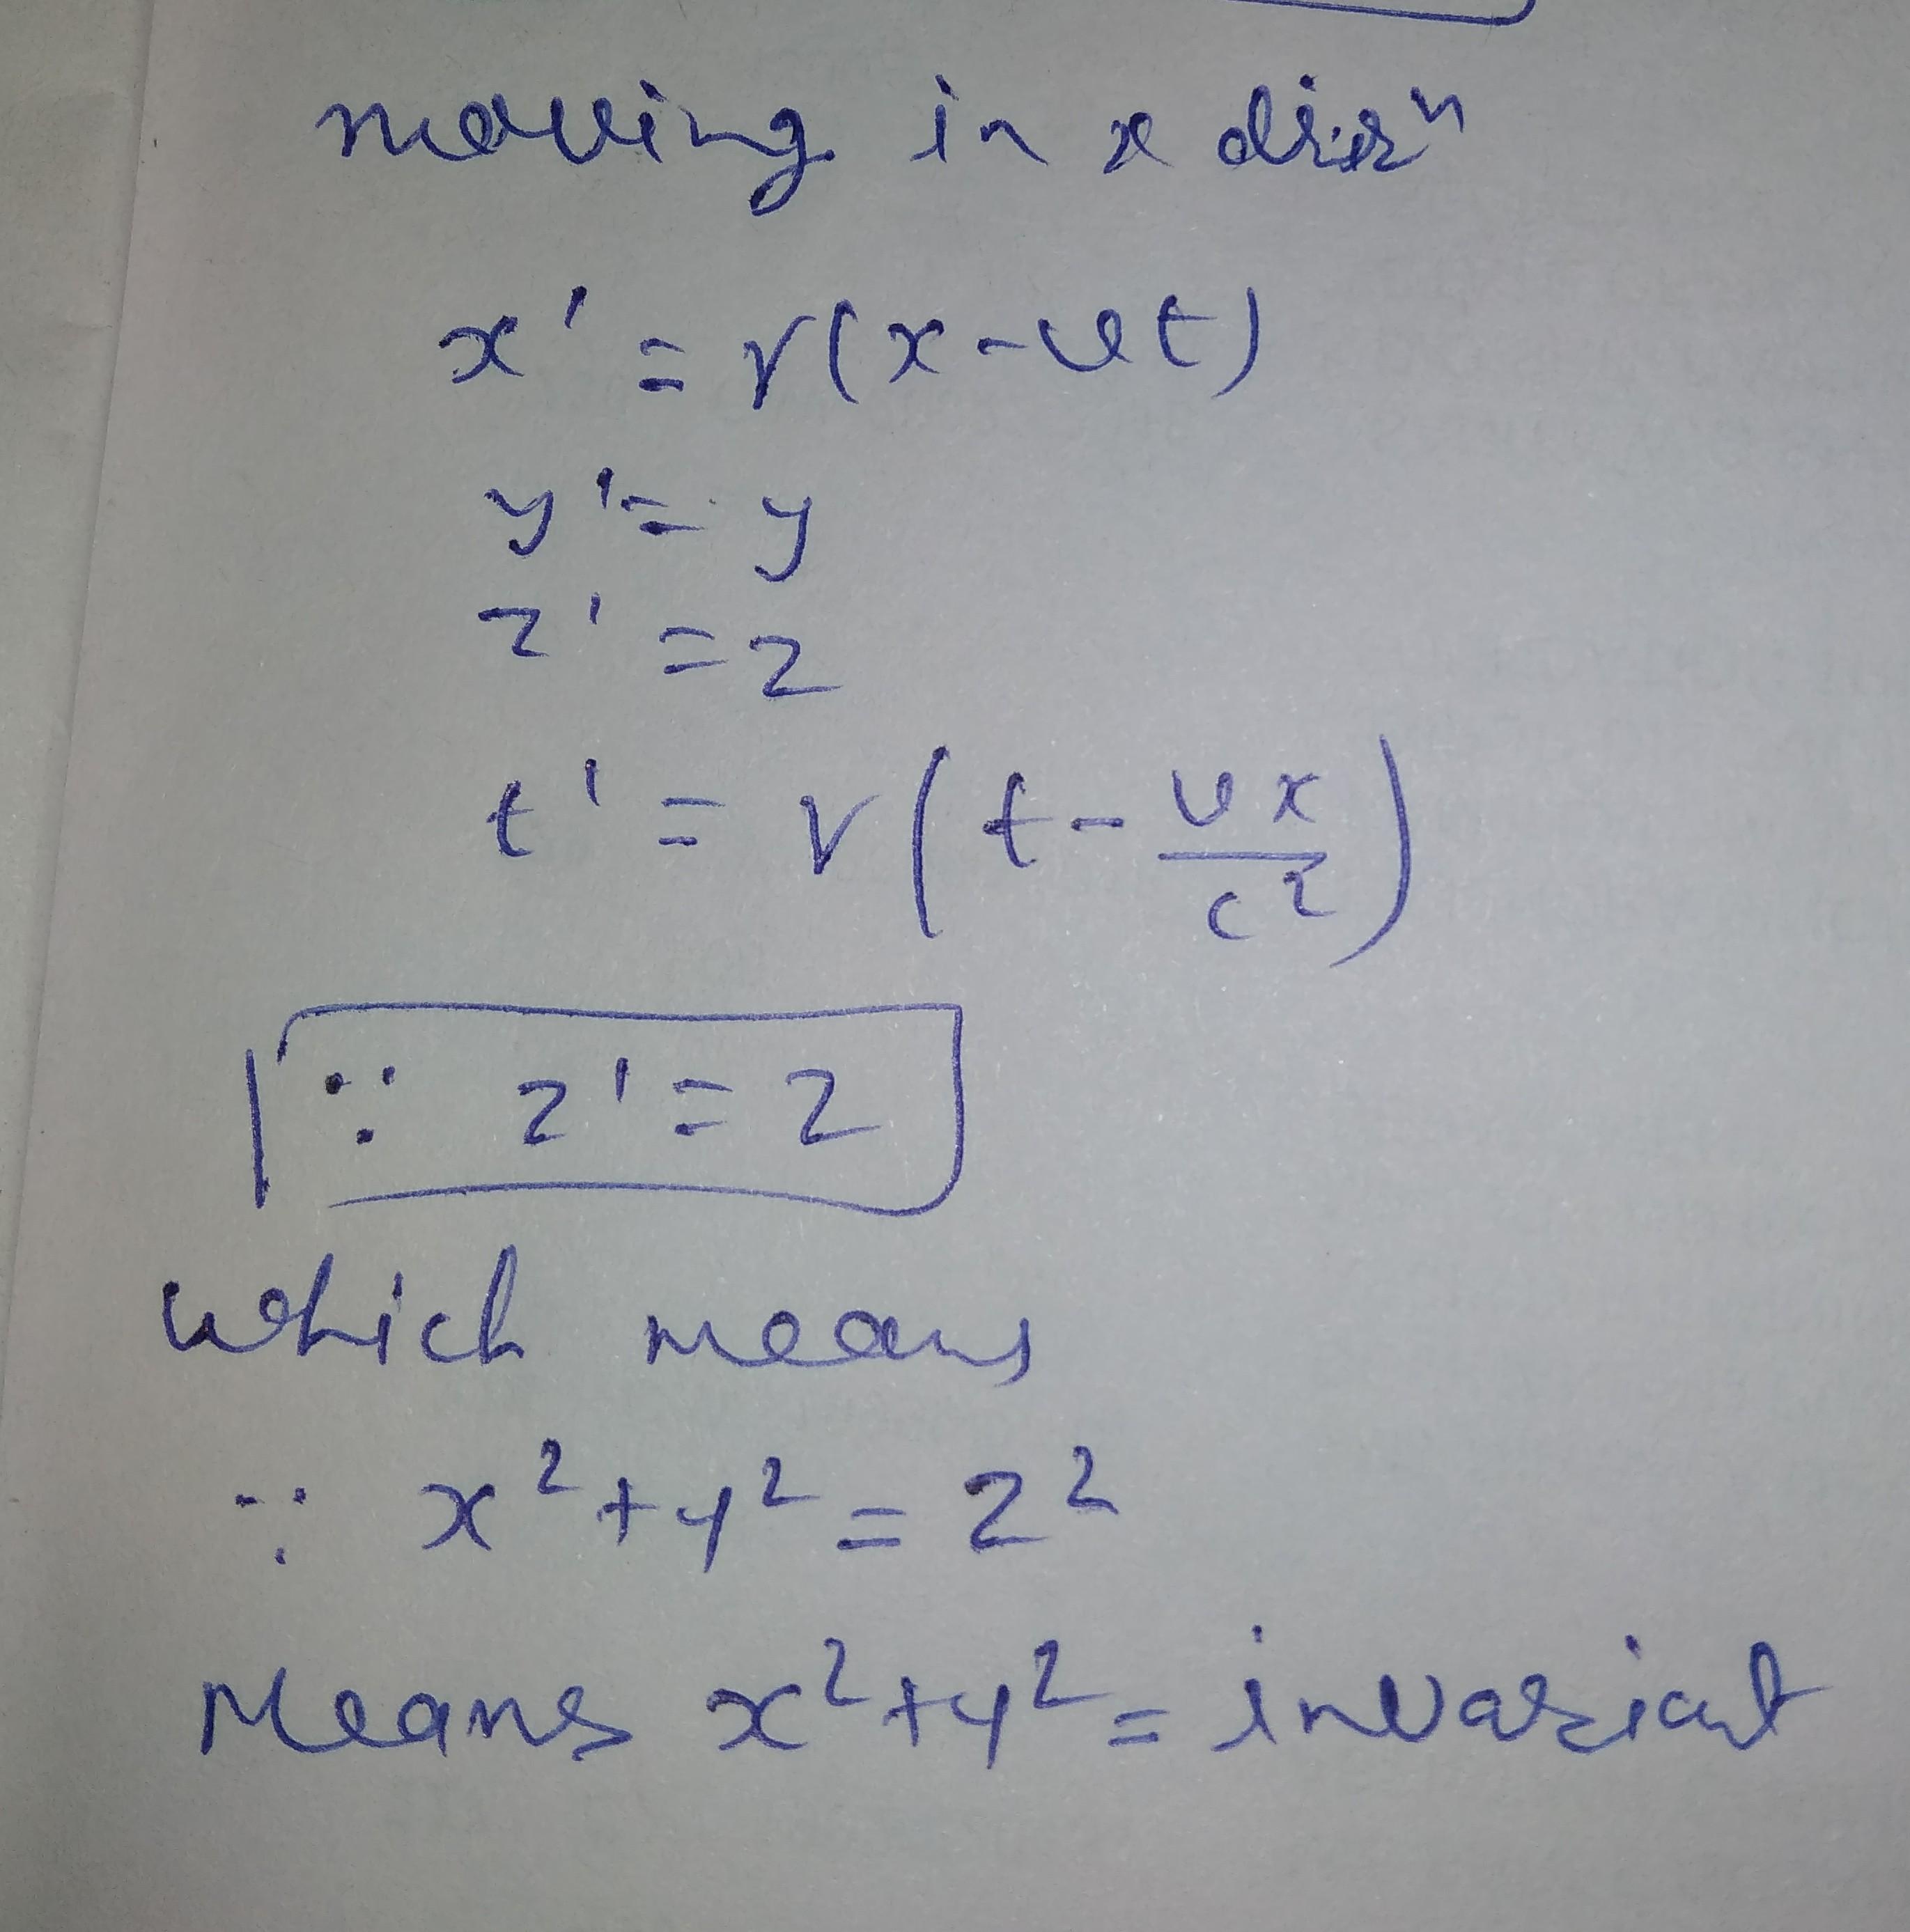 moving in x dirⁿ
x' = γ(x-vt)
y' = y
z' = z
t' = γ(t - vx/c²)
∵ z' = z
which means
∵ x² + y² = z²
Means x² + y² = invariant